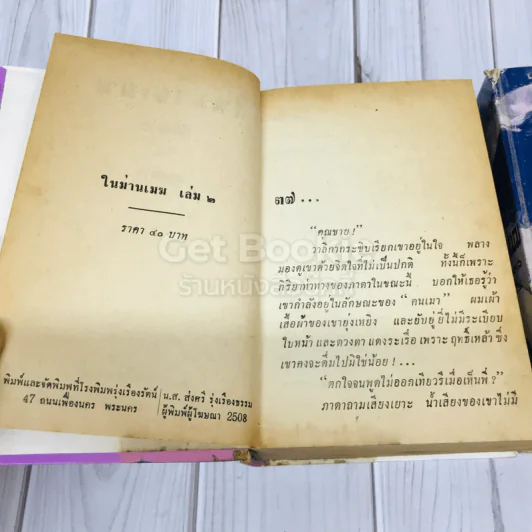 ในม่านเมฆ เล่ม ๒
ราคา ๔๐ บาท
พิมพ์และจัดพิมพ์ที่โรงพิมพ์รุ่งเรืองรัตน์
47 ถนนเฟื่องนคร พระนคร
น.ส. สงศรี รุ่งเรืองธรรม
ผู้พิมพ์ผู้โฆษณา 2508
๓๗ ...
"คุณชาย!"
วาถิการกระซิบเรียกเขาอยู่ในใจ พลาง
มองดูเขาด้วยจิตใจที่ไม่เป็นปกติ ทั้งนี้ก็เพราะ
กิริยาท่าทางของภาดาในขณะนี้ บอกให้เธอรู้ว่า
เขากำลังอยู่ในลักษณะของ "คนเมา" ผมเผ้า
เสื้อผ้าของเขายุ่งเหยิง และยับยู่ยี่ไม่มีระเบียบ
ใบหน้าและดวงตา แดงระเรื่อ เพราะ ฤทธิ์เหล้า ซึ่ง
เขาคงจะดื่มไปมิใช่น้อย!...
"ตกใจจนพูดไม่ออกเทียวรึเมื่อเห็นพี่?"
ภาดาถามเสียงเยาะ น้ำเสียงของเขาไม่มี
Get Bookie
ร้านหนังสือ